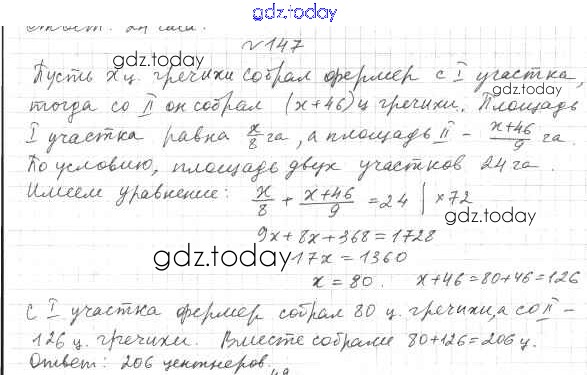 gdz.today
Ответ: 24 га.
№147
gdz.today
Пусть x ц. гречихи собрал фермер с I участка,
gdz.today
тогда со II он собрал (x+46) ц гречихи. Площадь
I участка равна x/8 га, а площадь II - (x+46)/9 га.
По условию, площадь двух участков 24 га.
Имеем уравнение: x/8 + (x+46)/9 = 24 | ×72
gdz.today
9x+8x+368=1728
gdz.today
17x=1360
x=80. x+46=80+46=126
С I участка фермер собрал 80 ц. гречихи, а со II -
126 ц. гречихи. Вместе собрали 80+126=206 ц.
Ответ: 206 центнеров.
gdz.today